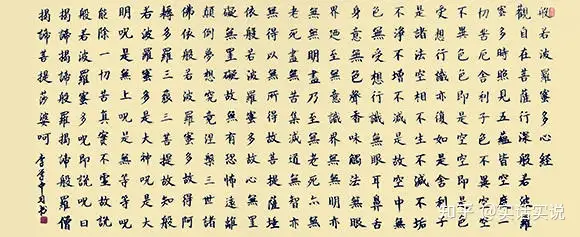 般若波羅蜜多心經
觀自在菩薩行深般若波羅
蜜多時照見五蘊皆空度一
切苦厄舍利子色不異空空
不異色色即是空空即是色
受想行識亦復如是舍利子
是諸法空相不生不滅不垢
不淨不增不減是故空中無
色無受想行識無眼耳鼻舌
身意無色聲香味觸法無眼
界乃至無意識界無無明亦
無無明盡乃至無老死亦無
老死盡無苦集滅道無智亦
無得以無所得故菩提薩埵
依般若波羅蜜多故心無罣
礙無罣礙故無有恐怖遠離
顛倒夢想究竟涅槃三世諸
佛依般若波羅蜜多故得阿
耨多羅三藐三菩提故知般
若波羅蜜多是大神咒是大
明咒是無上咒是無等等咒
能除一切苦真實不虛故說
般若波羅蜜多咒即說咒曰
揭諦揭諦般羅揭諦般羅僧
揭諦菩提莎婆呵
知乎 @实话实说